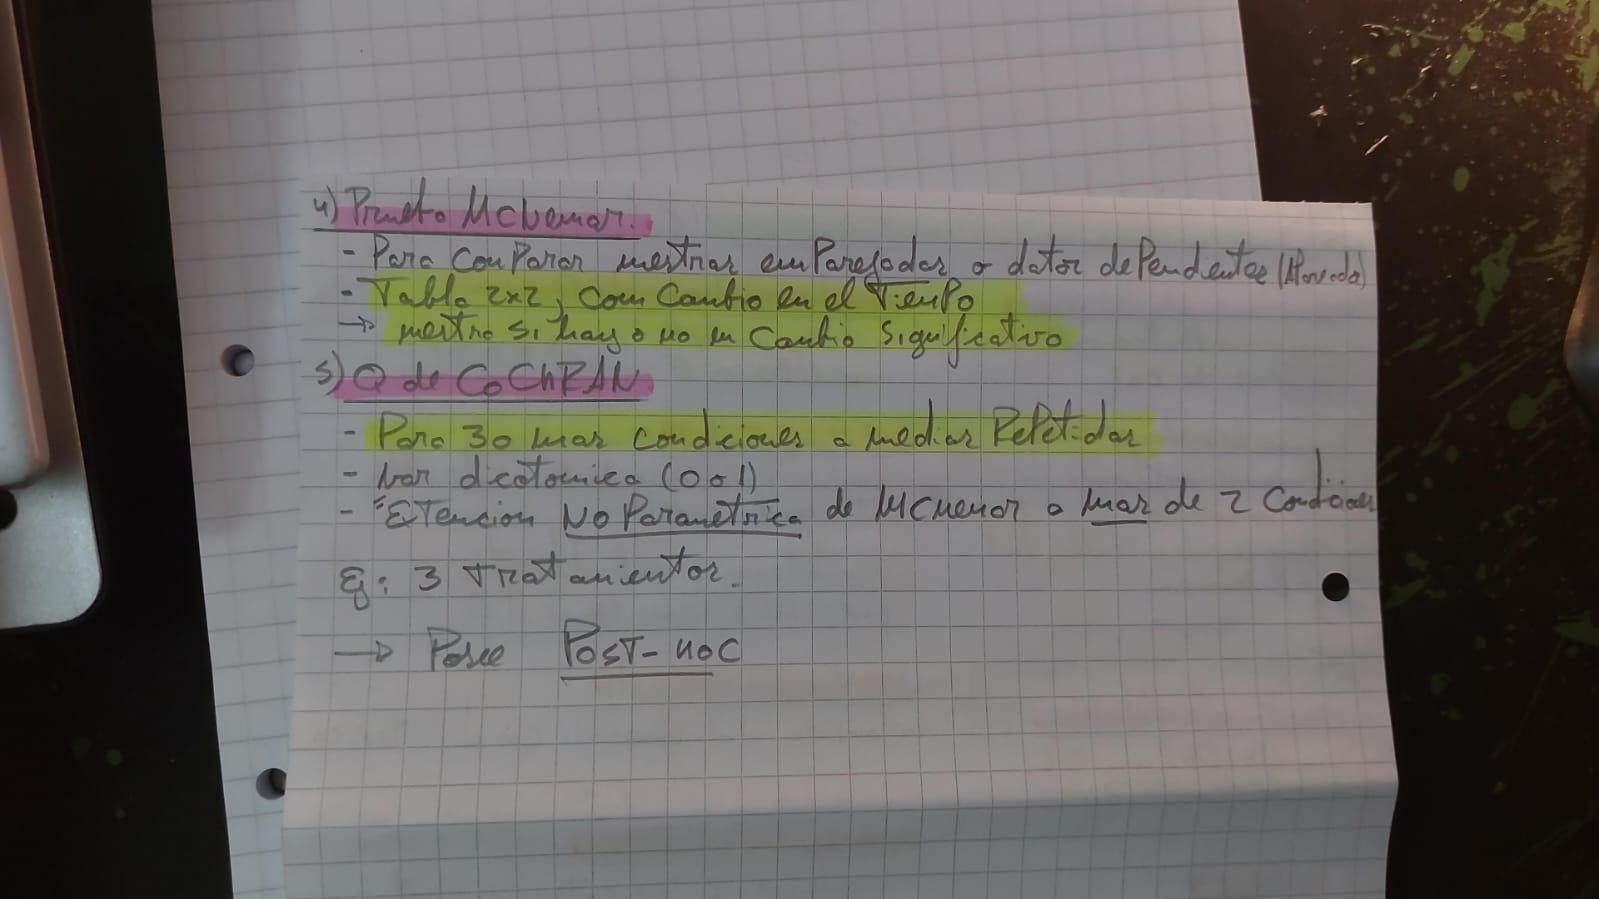 4) Prueba McNemar.
- Para comParar muestras emParejadas o datos dePendientes (Pareada)
- Tabla 2x2, con cambio en el Tiempo
→ muestra si hay o no un cambio significativo
5) Q de CoChRAN
- Para 3 o mas condiciones o medias RePetidas
- var dicotomica (0 o 1)
- "Etencion No Parametrica de McNemar a mas de 2 condiciones
Ej: 3 Tratamientos.
→ Posee PosT-Hoc